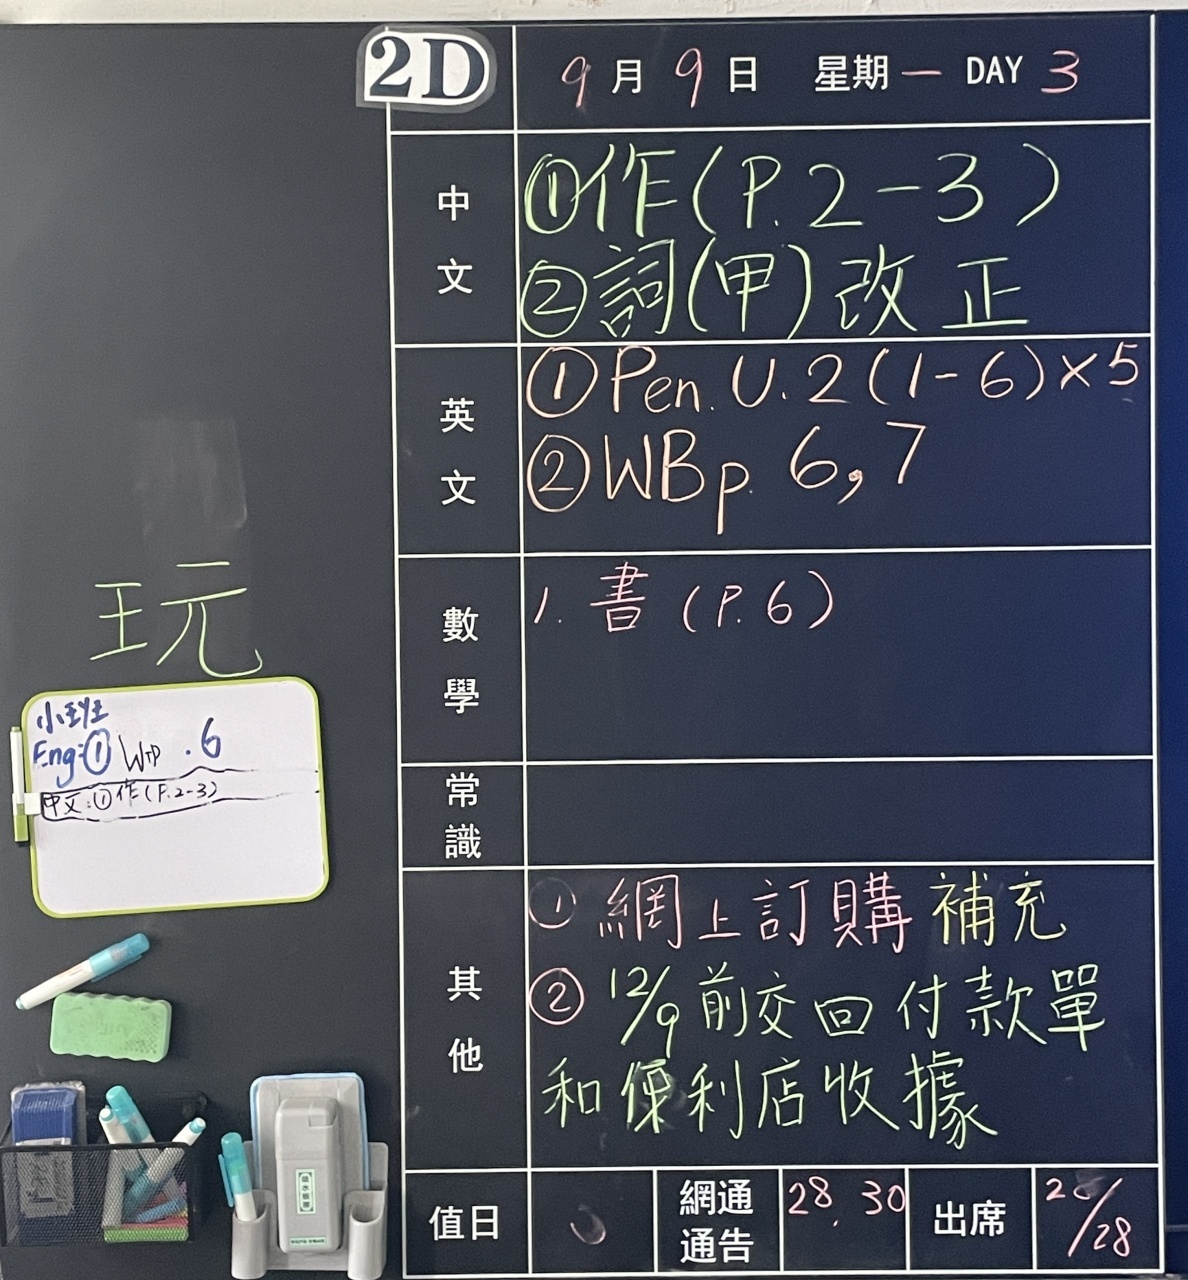 2D
9月9日 星期一 DAY 3
中文
①作(P.2-3)
②詞(甲)改正
英文
①Pen. U.2(1-6)×5
②WB p. 6,7
數學
1. 書(P.6)
常識
其他
①網上訂購補充
②12/9前交回付款單
和便利店收據
值日
網通通告 28. 30
出席 /28
玩
小班
Eng:① .6
中文:①作(P.2-3)